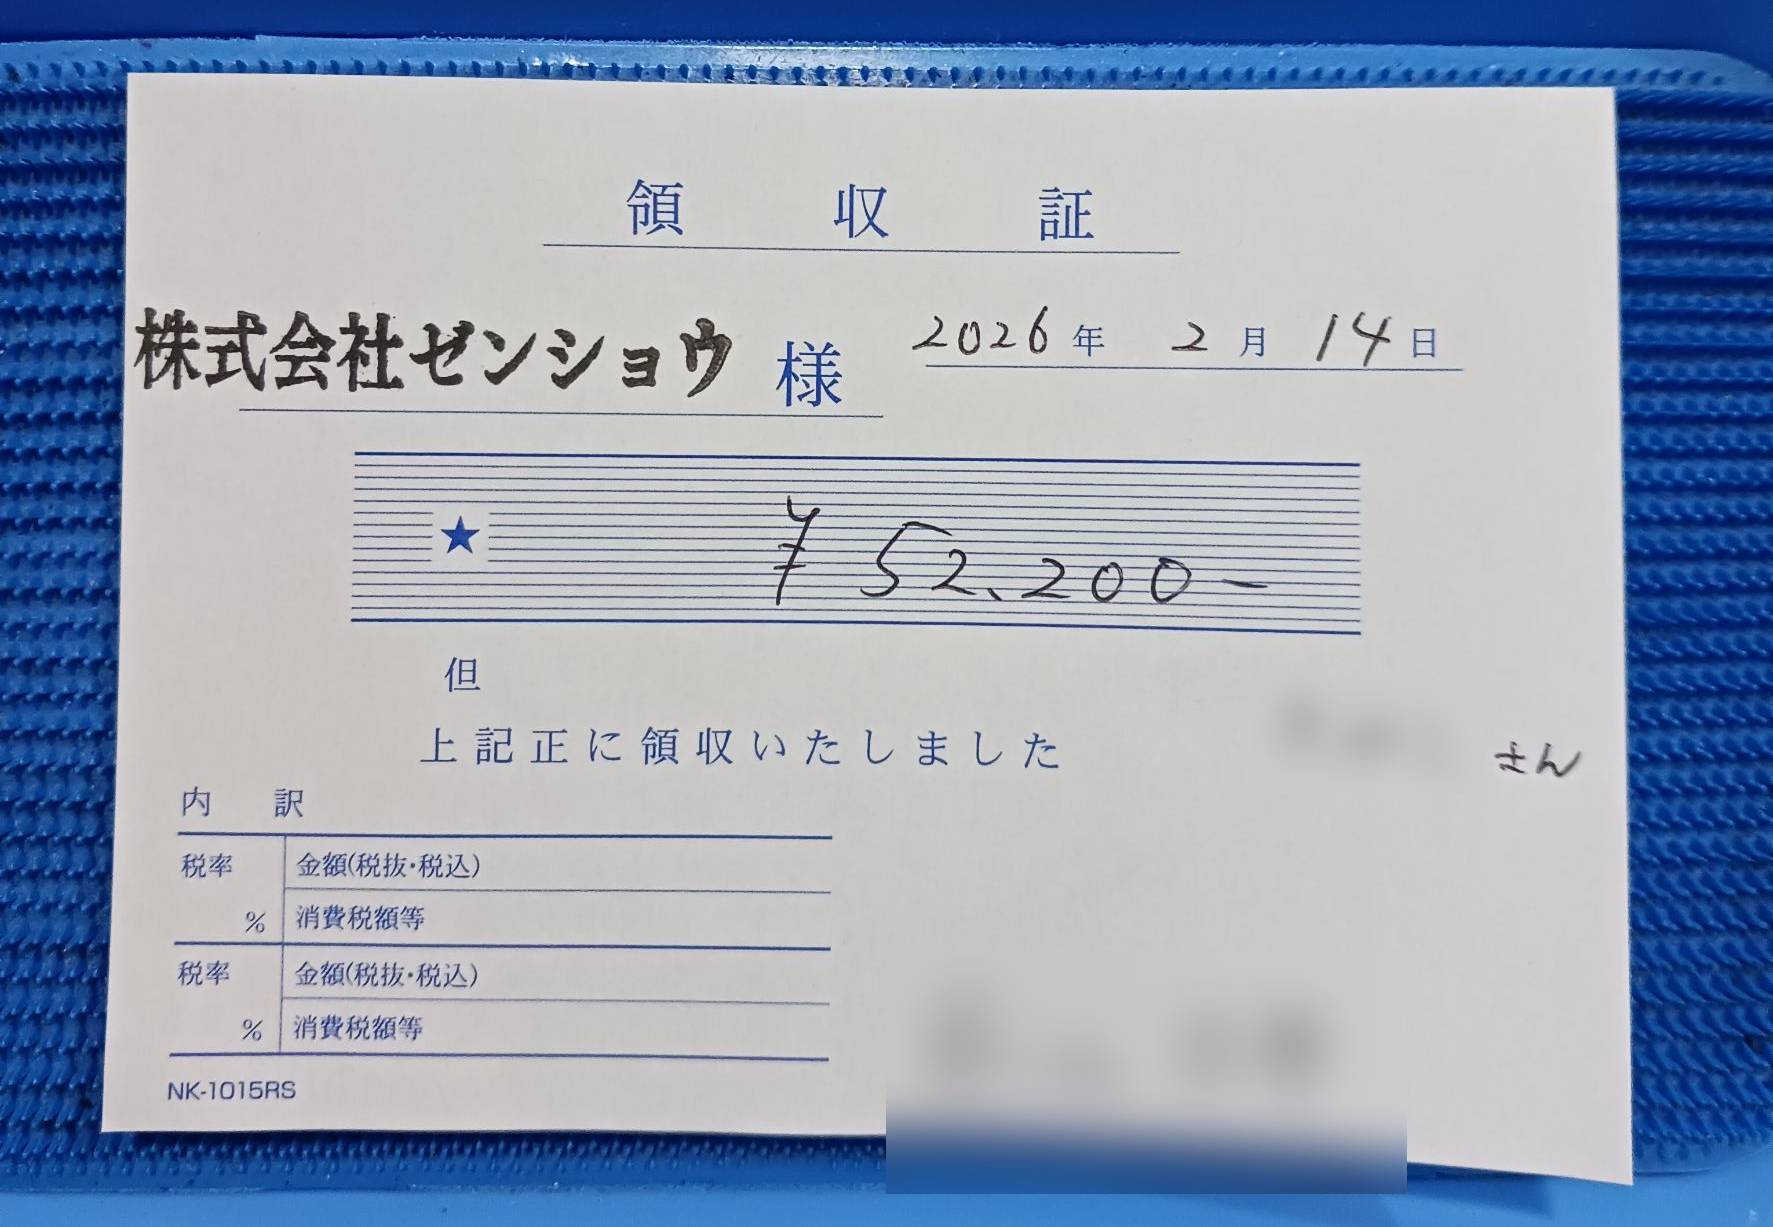 領収証
株式会社ゼンショウ 様
2026年 2月 14日
★ ¥52,200-
但
上記正に領収いたしました
さん
内訳
税率 金額(税抜・税込)
% 消費税額等
税率 金額(税抜・税込)
% 消費税額等
NK-1015RS